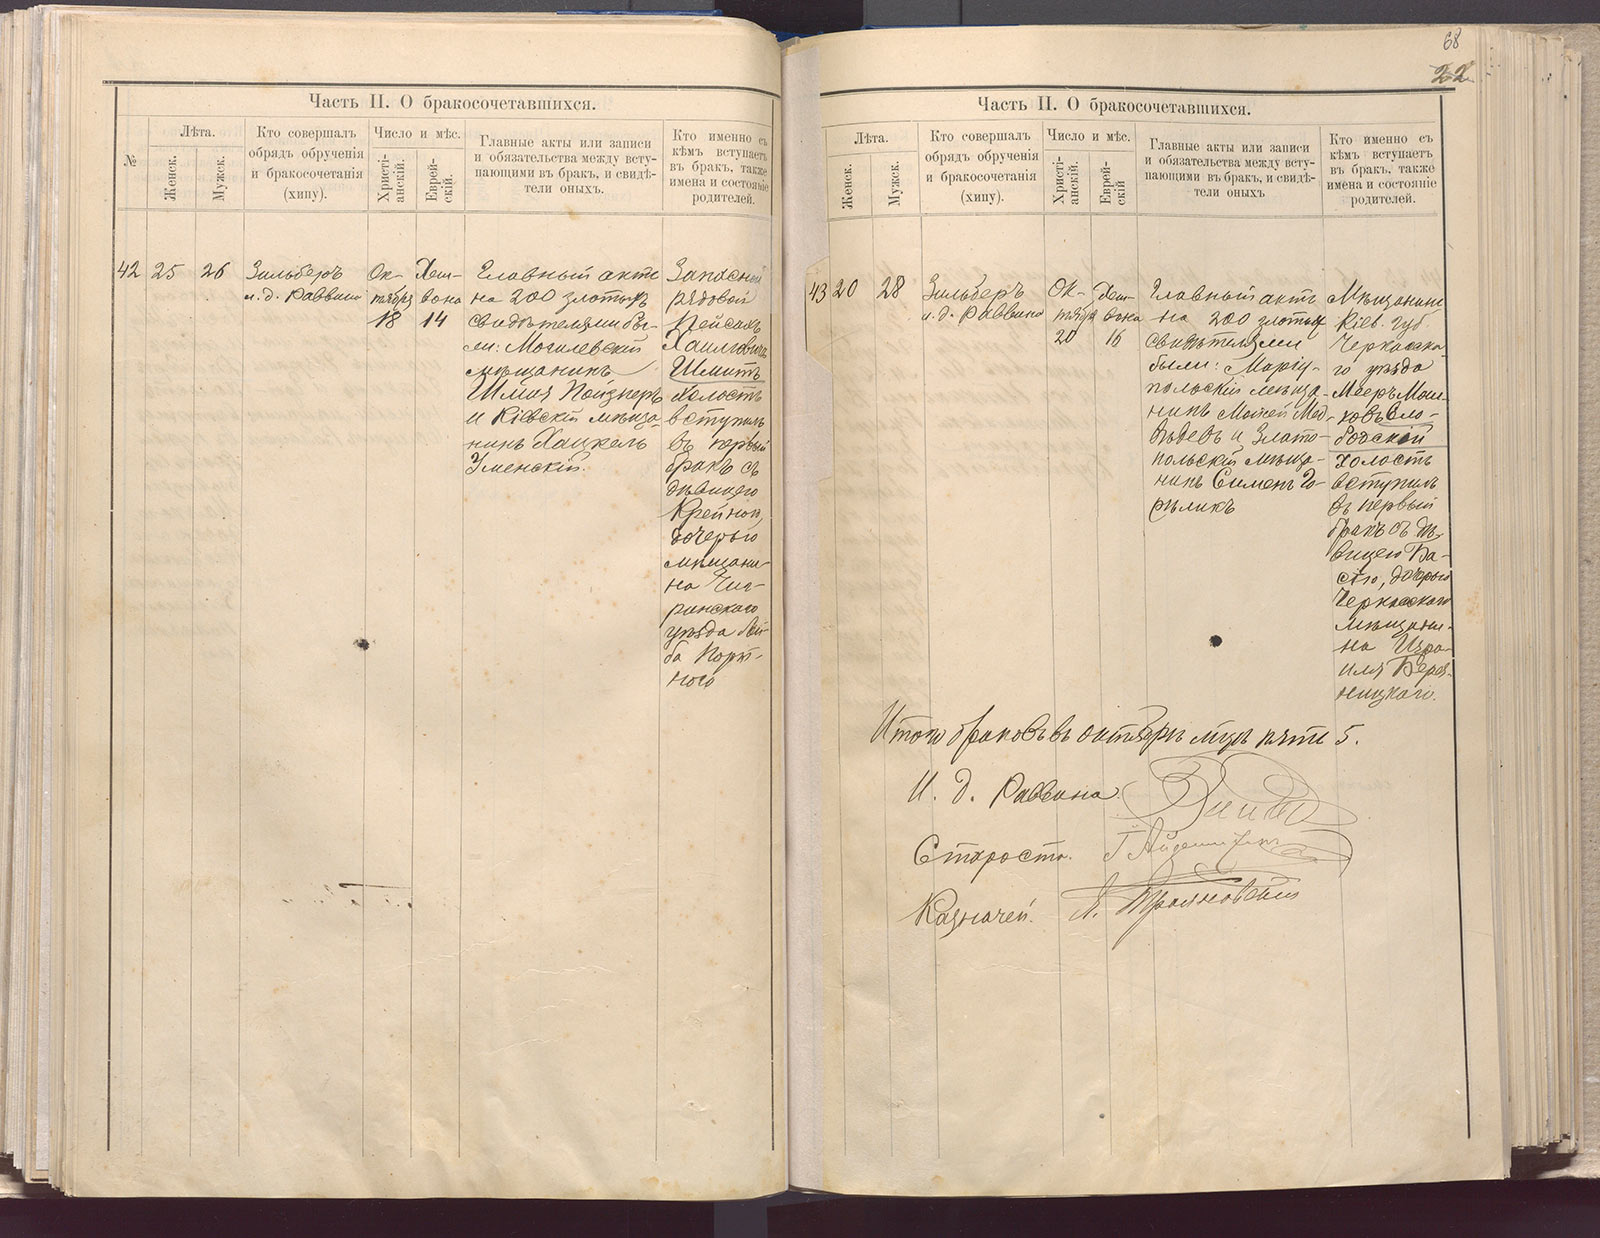 Часть II. О бракосочетавшихся.
№
Лѣта.
Женск.
Мужск.
Кто совершалъ
обрядъ обрученія
и бракосочетанія
(хипу).
Число и мѣс.
Христі-
анскій.
Еврей-
скій.
Главные акты или записи
и обязательства между всту-
пающими въ бракъ, и свидѣ-
тели оныхъ.
Кто именно съ
кѣмъ вступаетъ
въ бракъ, также
имена и состояніе
родителей.
42
25
26
Зильберъ
и. д. Раввина
Ок-
тября
18
Хеш-
вона
14
Главный актъ
на 200 злотыхъ
свидѣтелями бы-
ли: Могилевскій
мѣщанинъ
Шмая Пойзнеръ
и Кіевскій мѣща-
нинъ Хацкель
Уменскій.
Запасной
рядовой
Пейсахъ
Хаимовичъ
Шмитъ
холостъ
вступилъ
въ первый
бракъ съ
дѣвицею
Крейною,
дочерью
мѣщани-
на Чиг-
ринскаго
уѣзда Лей-
ба Порт-
ного
68
22
Часть II. О бракосочетавшихся.
Лѣта.
Женск.
Мужск.
Кто совершалъ
обрядъ обрученія
и бракосочетанія
(хипу).
Число и мѣс.
Христі-
анскій.
Еврей-
скій
Главные акты или записи
и обязательства между всту-
пающими въ бракъ, и свидѣ-
тели оныхъ
Кто именно съ
кѣмъ вступаетъ
въ бракъ, также
имена и состояніе
родителей.
43
20
28
Зильберъ
и. д. Раввина
Ок-
тября
20
Хеш-
вона
16
Главный актъ
на 200 злотых
свидѣтелями
были: Маріу-
польскій мѣща-
нинъ Мойсей Мед-
вѣдевъ и Злато-
польскій мѣща-
нинъ Сименъ Го-
рѣликъ
Мѣщанинъ
Кіев. губ.
Черкасска-
го уѣзда
Мееръ Мош-
ковъ Сло-
бодскій
холостъ
вступилъ
въ первый
бракъ съ дѣ-
вицею Ба-
сею, дочерью
Черкасскаго
мѣщани-
на Изра-
иля Берез-
ницкаго.
Итого браковъ въ октябрѣ мѣцѣ пять 5.
И. д. Раввина
Староста.
Казначей.